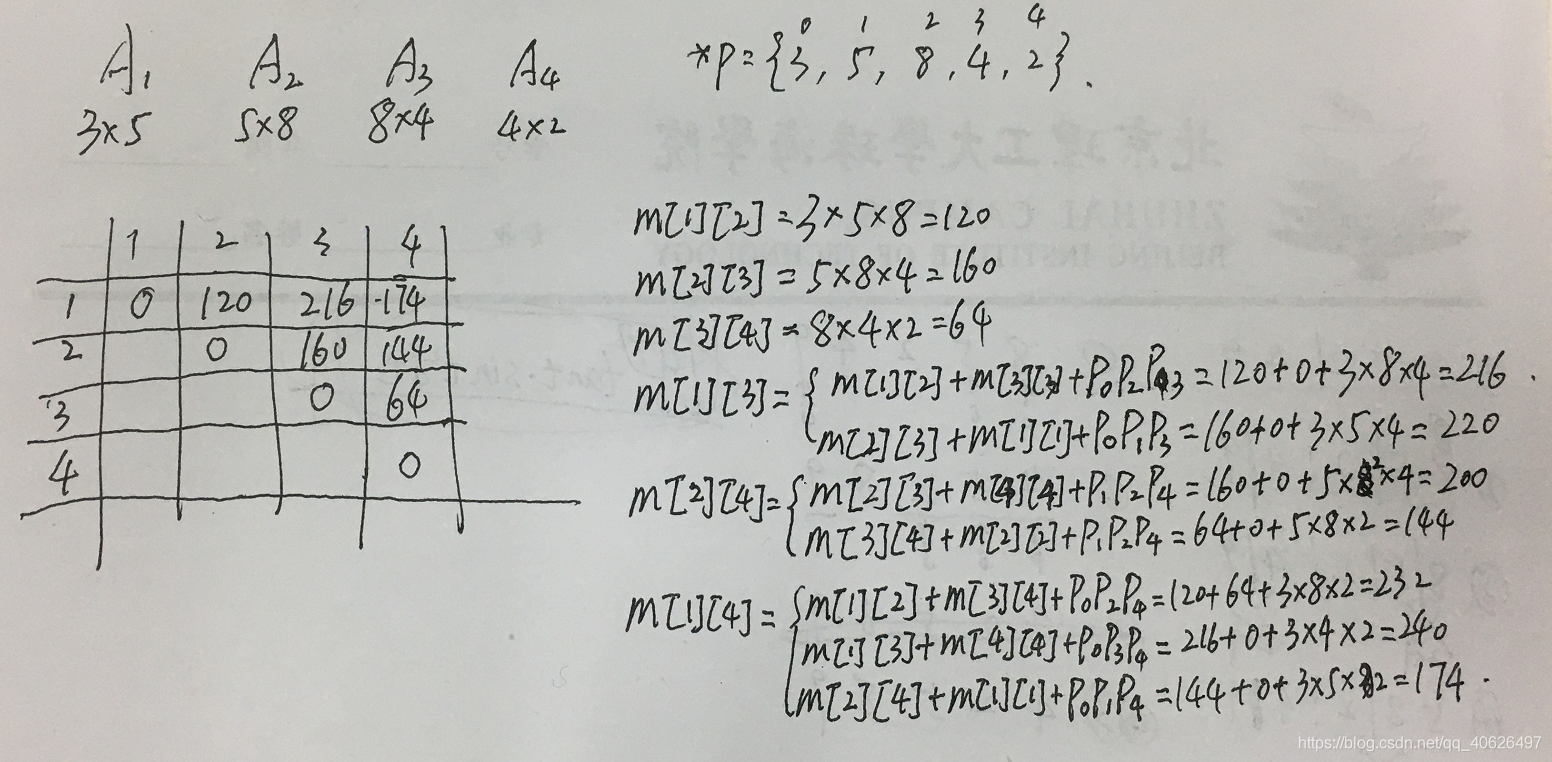 A1 A2 A3 A4
3×5 5×8 8×4 4×2
0 1 2 3 4
*P={3, 5, 8, 4, 2}.
1 2 3 4
1 0 120 216 174
2 0 160 144
3 0 64
4 0
m[1][2]=3×5×8=120
m[2][3]=5×8×4=160
m[3][4]=8×4×2=64
m[1][3]={m[1][2]+m[3][3]+P0P2P3=120+0+3×8×4=216.
m[2][3]+m[1][1]+P0P1P3=160+0+3×5×4=220
m[2][4]={m[2][3]+m[4][4]+P1P2P4=160+0+5×2×4=200
m[3][4]+m[2][2]+P1P2P4=64+0+5×8×2=144
m[1][4]={m[1][2]+m[3][4]+P0P2P4=120+64+3×8×2=232
m[1][3]+m[4][4]+P0P3P4=216+0+3×4×2=240
m[2][4]+m[1][1]+P0P1P4=144+0+3×5×2=174.
北京理工大學珠海學院
BEIJING INSTITUTE OF TECHNOLOGY
https://blog.csdn.net/qq_40626497